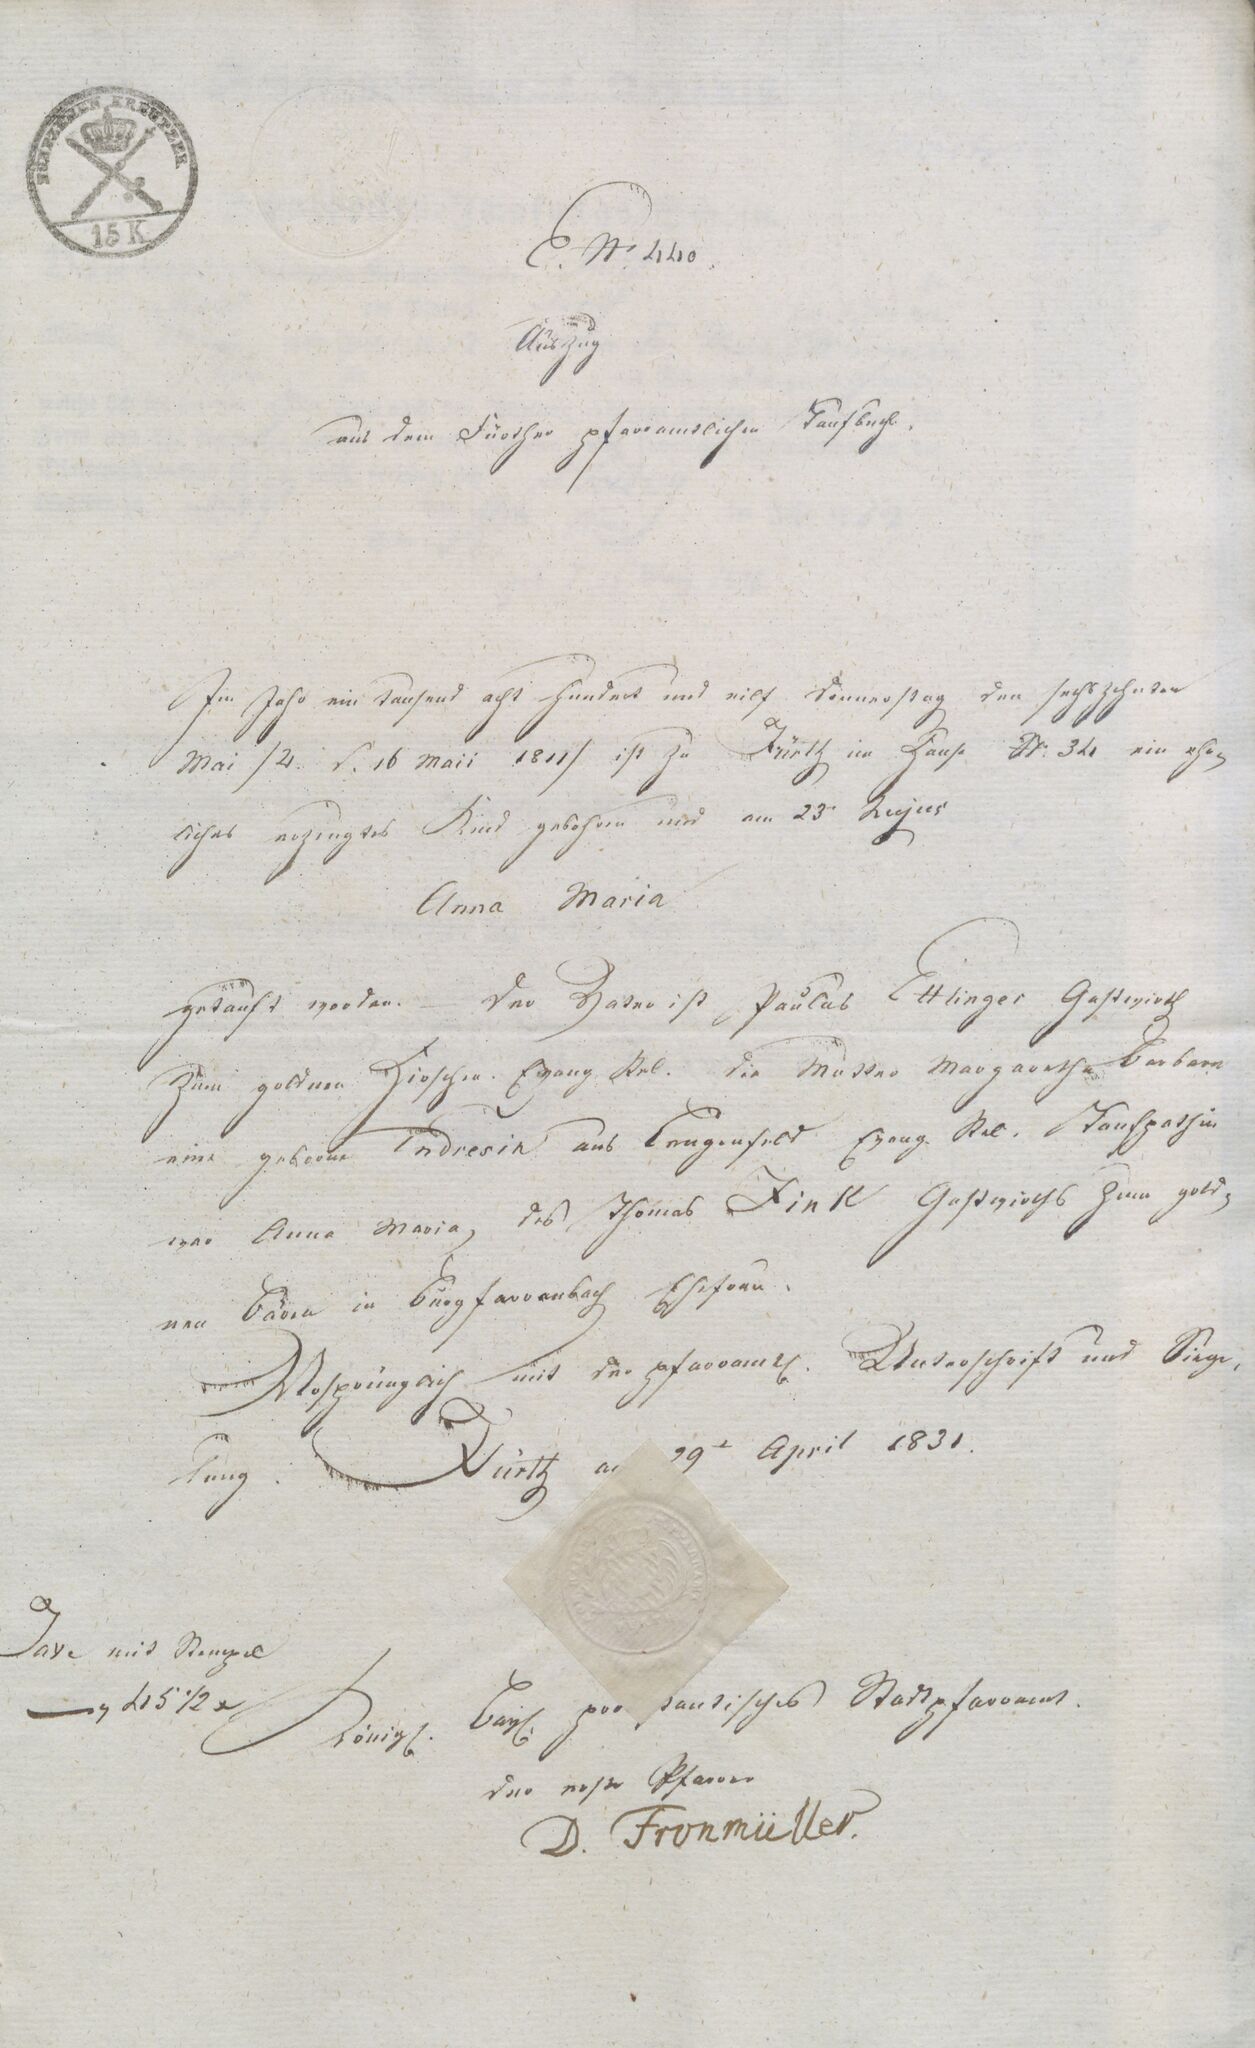 FÜNFZEHEN KREUTZER
15 K
E. N. 440.
Auszug
aus dem Fürther pfarramtlichen Taufbuch.
Im Jahr ein tausend acht hundert und eilf Donnerstag den sechszehnten
Mai /: d. 16 Maii 1811/ ist zu Fürth im Hause Nr. 34 ein ehe-
liches erzeugtes Kind gebohren und am 23 hujus
Anna Maria
getauft worden. – Der Vater ist Paulus Ettlinger Gastwirth
zum goldnen Hirschen. Evang. Rel. die Mutter Margaretha Barbara
eine geborne Endresin aus Lengenfeld Evang. Rel. Taufpathin
war Anna Maria, des Thomas Fink Gastwirths zum gold-
nen Bären in Burgfarrnbach Ehefrau.
Urspringlich mit der pfarramtl. Unterschrift und Siege-
lung. Fürth am 29 April 1831.
Taxe mit Stempel
45 1/2 x
Königl. Bayl. protestantisches Stadtpfarramt.
der erste Pfarrer
D. Fronmüller.